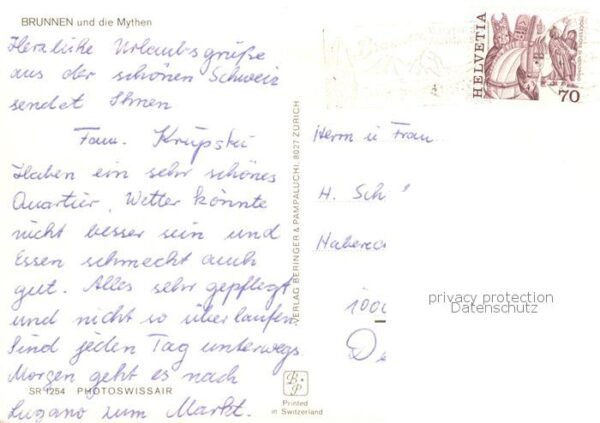 BRUNNEN und die Mythen
Herzliche Urlaubsgrüße
aus der schönen Schweiz
sendet Ihnen
Fam. Krupski
Haben ein sehr schönes
Quartier, Wetter könnte
nicht besser sein und
Essen schmeckt auch
gut. Alles sehr gepflegt
und nicht so überlaufen.
Sind jeden Tag unterwegs
Morgen geht es nach
SR 1254 PHOTOSWISSAIR
Lugano zum Markt.
VERLAG BERINGER & PAMPALUCHI, 8027 ZÜRICH
B P
Printed
in Switzerland
HELVETIA
70
Herrn u Frau
H. Sch
1000
privacy protection
Datenschutz